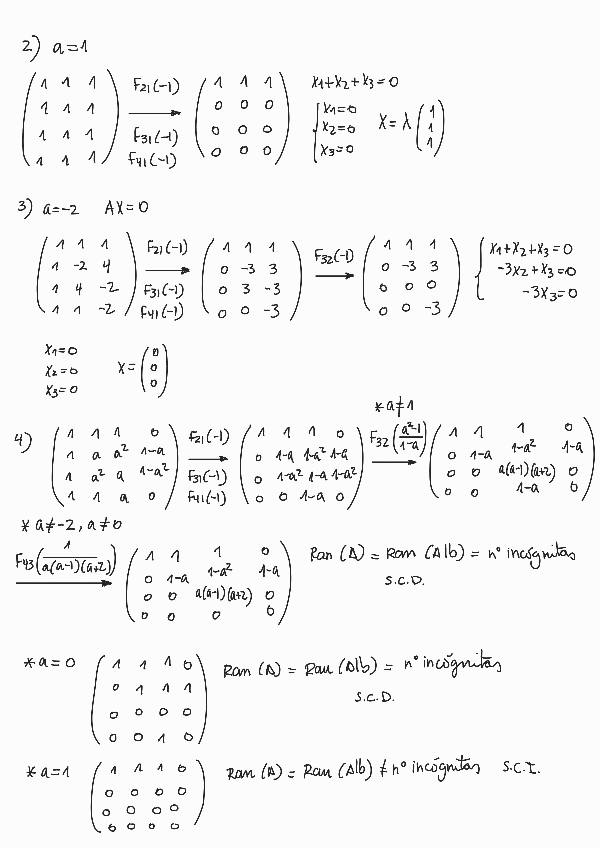 2) a=1
( 1 1 1 ; 1 1 1 ; 1 1 1 ; 1 1 1 ) F21(-1) F31(-1) F41(-1) → ( 1 1 1 ; 0 0 0 ; 0 0 0 ; 0 0 0 ) x1+x2+x3=0 { x1=0 x2=0 x3=0 X=λ ( 1 1 1 )
3) a=-2 AX=0
( 1 1 1 ; 1 -2 4 ; 1 4 -2 ; 1 1 -2 ) F21(-1) F31(-1) F41(-1) → ( 1 1 1 ; 0 -3 3 ; 0 3 -3 ; 0 0 -3 ) F32(-1) → ( 1 1 1 ; 0 -3 3 ; 0 0 0 ; 0 0 -3 ) { x1+x2+x3=0 -3x2+x3=0 -3x3=0
x1=0
x2=0 X= ( 0 0 0 )
x3=0
* a≠1
4) ( 1 1 1 0 ; 1 a a² 1-a ; 1 a² a 1-a² ; 1 1 a 0 ) F21(-1) F31(-1) F41(-1) → ( 1 1 1 0 ; 0 1-a 1-a² 1-a ; 0 1-a² 1-a 1-a² ; 0 0 1-a 0 ) F32(a²-1/1-a) → ( 1 1 1 0 ; 0 1-a 1-a² 1-a ; 0 0 a(a-1)(a+2) 0 ; 0 0 1-a 0 )
* a≠-2, a≠0
F43(1/a(a-1)(a+2)) → ( 1 1 1 0 ; 0 1-a 1-a² 1-a ; 0 0 a(a-1)(a+2) 0 ; 0 0 0 0 ) Ran (A) = Ran (A|b) = nº incógnitas
S.C.D.
* a=0 ( 1 1 1 0 ; 0 1 1 1 ; 0 0 0 0 ; 0 0 1 0 ) Ran (A) = Ran (A|b) = nº incógnitas
S.C.D.
* a=1 ( 1 1 1 0 ; 0 0 0 0 ; 0 0 0 0 ; 0 0 0 0 ) Ran (A) = Ran (A|b) ≠ nº incógnitas S.C.I.